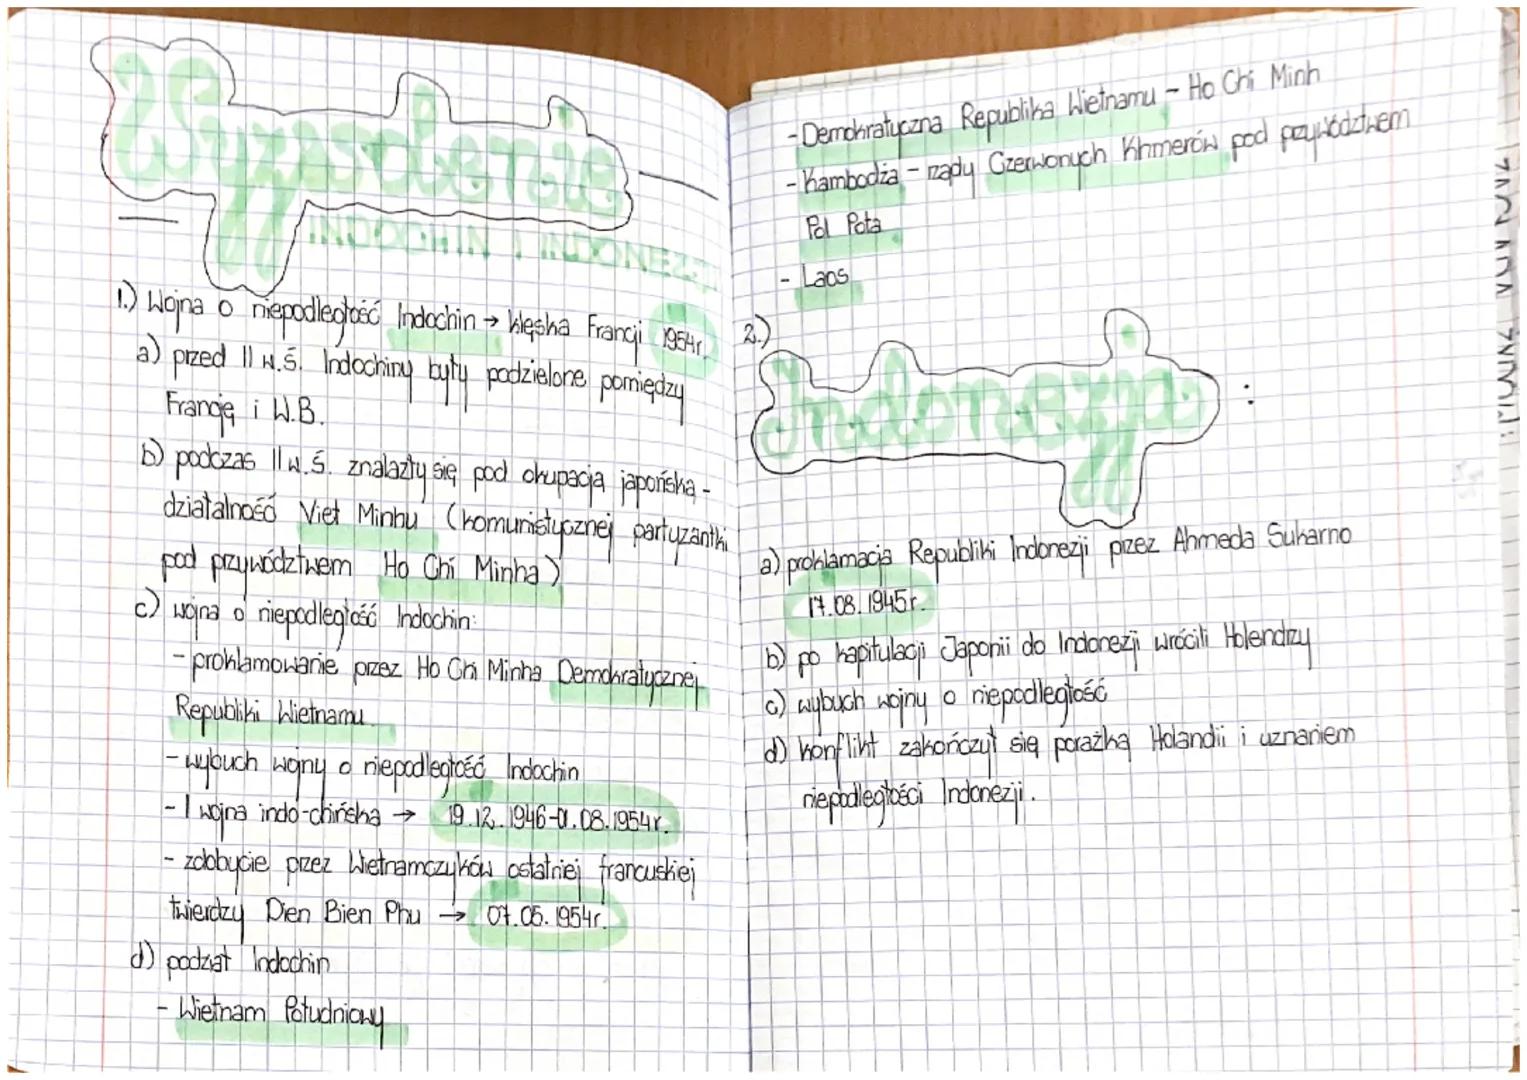 1.) Wojna o niepodległość Indochin → klęska Francji 1954r.
a) przed II w.ś. Indochiny były podzielone pomiędzy
Francję i W.B.
b) podczas II w.ś. znalazły się pod okupacją japońską -
działalność Viet Minhu (komunistycznej partyzantki
pod przywództwem Ho Chi Minha)
c) wojna o niepodległość Indochin:
- proklamowanie przez Ho Chi Minha Demokratycznej
Republiki Wietnamu.
- wybuch wojny o niepodległość Indochin
- I wojna indo-chińska → 19.12.1946-01.08.1954r.
- zdobycie przez Wietnamczyków ostatniej francuskiej
twierdzy Dien Bien Phu → 07.05.1954r.
d) podział Indochin
- Wietnam Południowy
- Demokratyczna Republika Wietnamu - Ho Chi Minh
- Kambodża - rządy Czerwonych Khmerów pod przywództwem
Pol Pota
- Laos
2.) Indonezja :
a) proklamacja Republiki Indonezji przez Ahmeda Sukarno
17.08.1945r.
b) po kapitulacji Japonii do Indonezji wrócili Holendrzy
c) wybuch wojny o niepodległość
d) konflikt zakończył się porażką Holandii i uznaniem
niepodległości Indonezji.